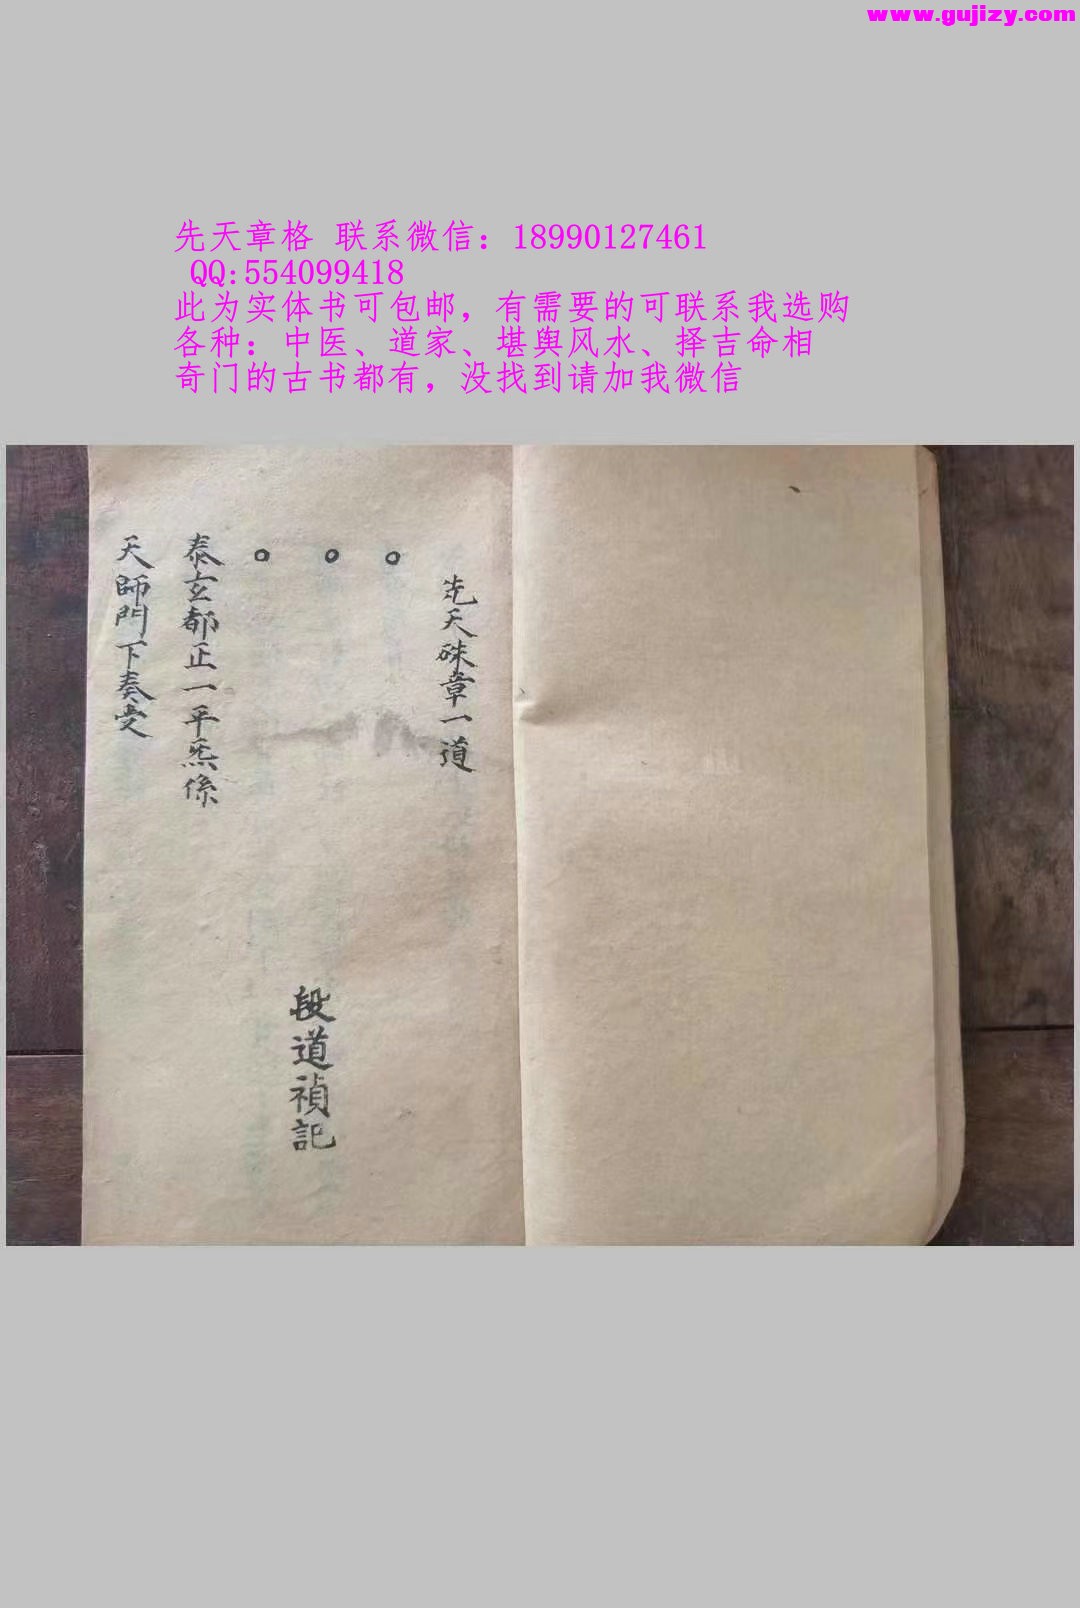 www.gujizy.com
先天章格 联系微信：18990127461
QQ:554099418
此为实体书可包邮，有需要的可联系我选购
各种：中医、道家、堪舆风水、择吉命相
奇门的古书都有，没找到请加我微信
先天硃章一道
○
○
○
泰玄都正一平炁係
天師門下奏受
段道禎記